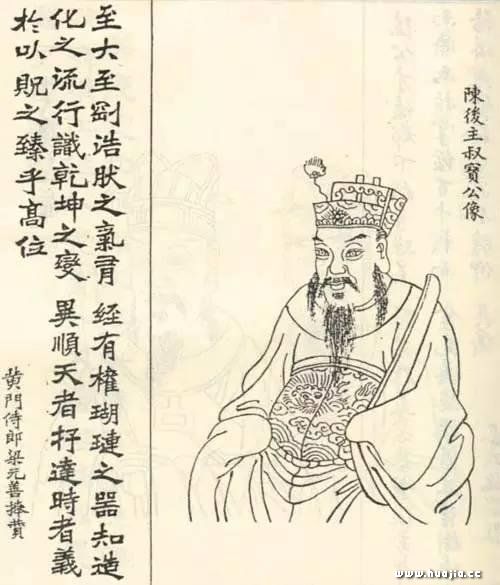 陳後主叔寶公像
至大至剛浩肰之氣胥經有權瑚璉之器知造
化之流行識乾坤之變異順天者達時者義
於以貺之臻乎髙位
黃門侍郎梁元善捧贊
www.huajia.cc